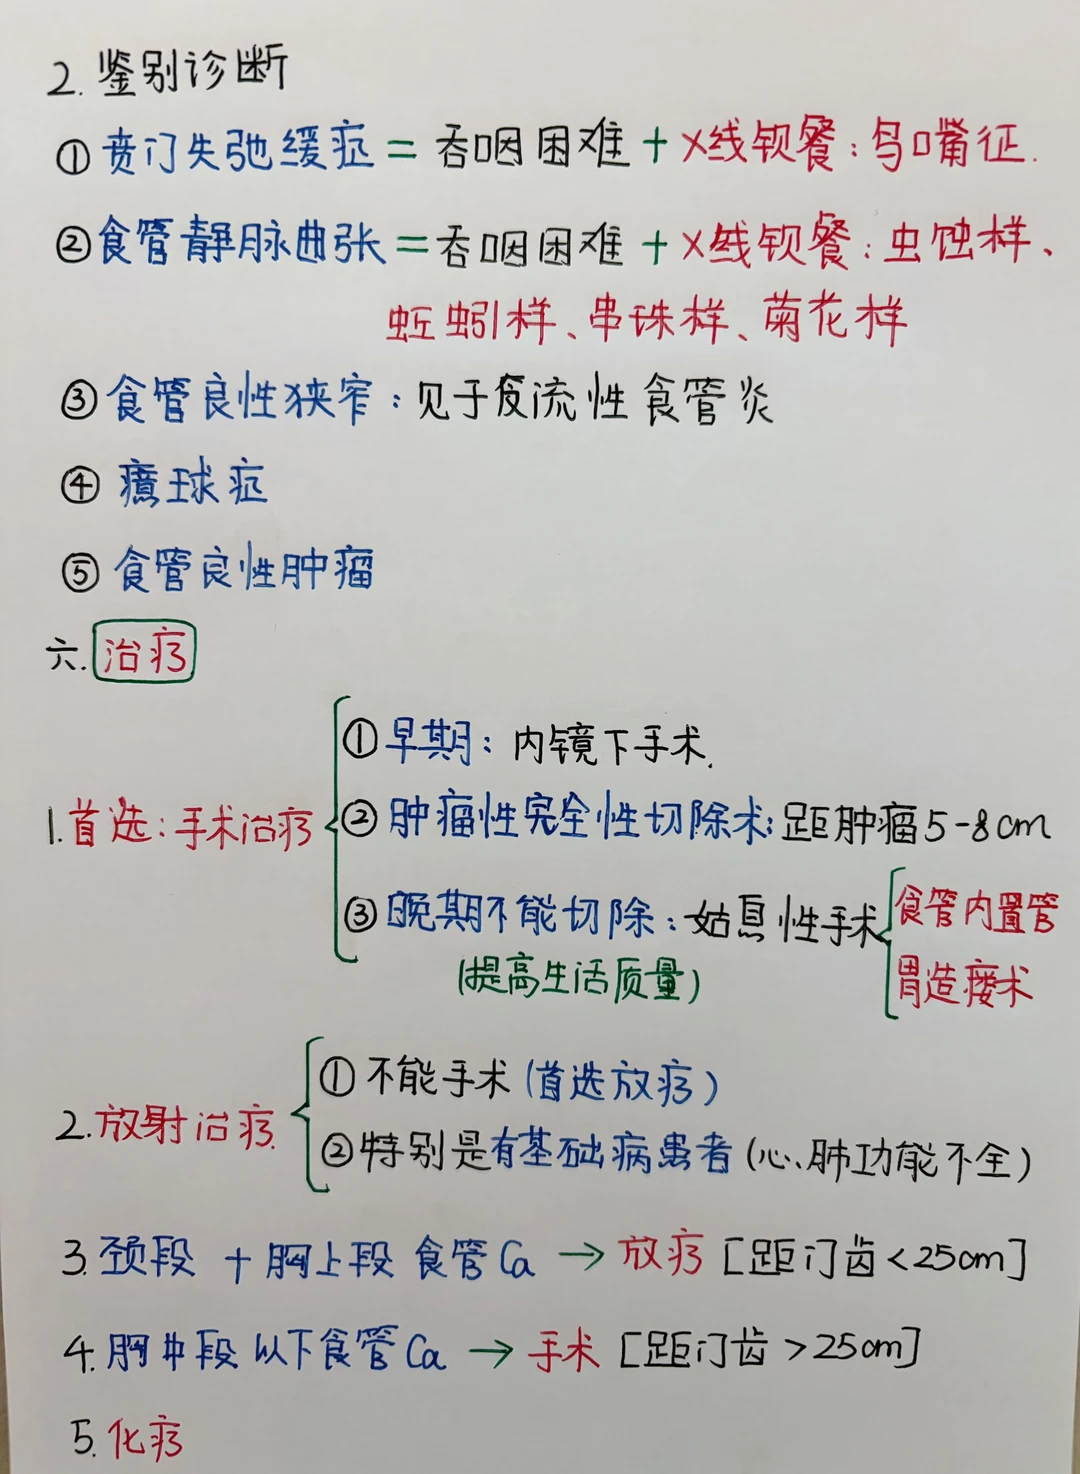 2. 鉴别诊断
①贲门失弛缓症 = 吞咽困难 + X线钡餐：鸟嘴征.
②食管静脉曲张 = 吞咽困难 + X线钡餐：虫蚀样、
蚯蚓样、串珠样、菊花样
③食管良性狭窄：见于反流性食管炎
④癔球症
⑤食管良性肿瘤
六. 治疗
1. 首选：手术治疗
①早期：内镜下手术.
②肿瘤性完全性切除术：距肿瘤5-8cm
③晚期不能切除：姑息性手术
食管内置管
胃造瘘术
(提高生活质量)
2. 放射治疗.
①不能手术(首选放疗)
②特别是有基础病患者(心、肺功能不全)
3. 颈段 + 胸上段 食管Ca → 放疗 [距门齿<25cm]
4. 胸中段以下食管Ca → 手术 [距门齿>25cm]
5. 化疗